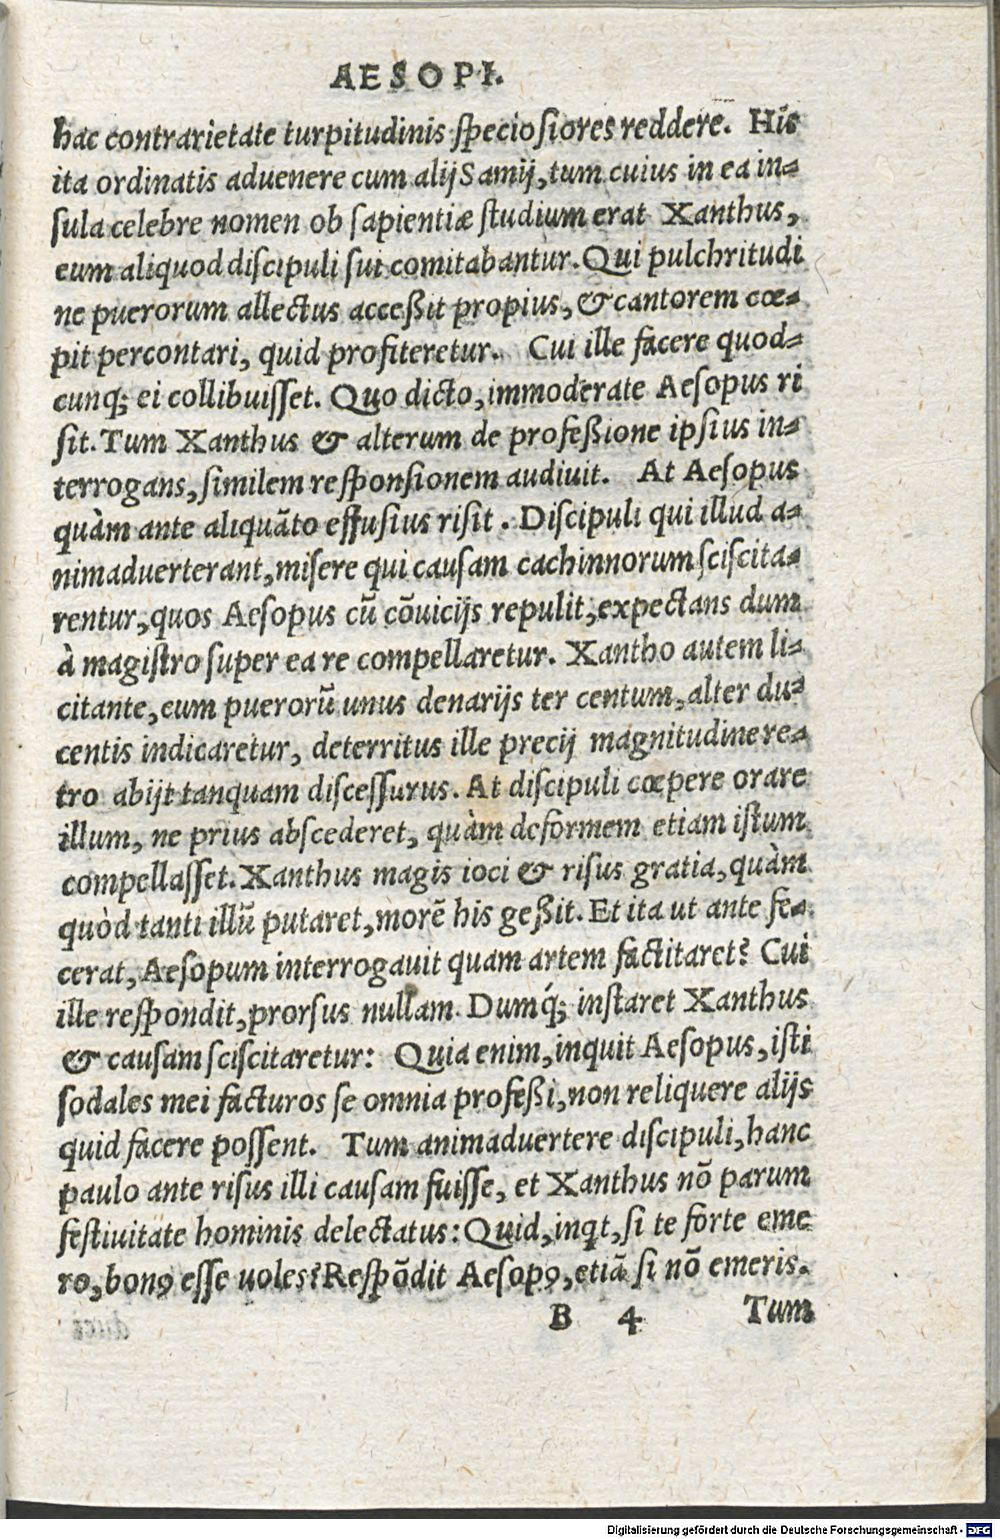 AESOPI.
hac contrarietate turpitudinis speciosiores reddere. His
ita ordinatis aduenere cum alij Samij, tum cuius in ea in-
sula celebre nomen ob sapientiæ studium erat Xanthus,
eum aliquod discipuli sui comitabantur. Qui pulchritudi
ne puerorum allectus acceßit propius, & cantorem cœ-
pit percontari, quid profiteretur. Cui ille facere quod-
cunq; ei collibuisset. Quo dicto, immoderate Aesopus ri
sit. Tum Xanthus & alterum de profeßione ipsius in-
terrogans, similem responsionem audiuit. At Aesopus
quàm ante aliquãto effusius risit. Discipuli qui illud a-
nimaduerterant, misere qui causam cachinnorum sciscita-
rentur, quos Aesopus cũ cõuicijs repulit, expectans dum
à magistro super ea re compellaretur. Xantho autem li-
citante, cum puerorũ unus denarijs ter centum, alter du-
centis indicaretur, deterritus ille precij magnitudine re-
tro abijt tanquam discessurus. At discipuli cœpere orare
illum, ne prius abscederet, quàm deformem etiam istum
compellasset. Xanthus magis ioci & risus gratia, quàm
quòd tanti illũ putaret, morẽ his geßit. Et ita ut ante fe-
cerat, Aesopum interrogauit quam artem factitaret? Cui
ille respondit, prorsus nullam. Dumq́; instaret Xanthus
& causam sciscitaretur: Quia enim, inquit Aesopus, isti
sodales mei facturos se omnia profeßi, non reliquere alijs
quid facere possent. Tum animaduertere discipuli, hanc
paulo ante risus illi causam fuisse, et Xanthus nõ parum
festiuitate hominis delectatus: Quid, inqt, si te forte eme
ro, bonꝰ esse uoles? Respõdit Aesopꝰ, etiã si nõ emeris.
B 4 Tum
Digitalisierung gefördert durch die Deutsche Forschungsgemeinschaft - DFG